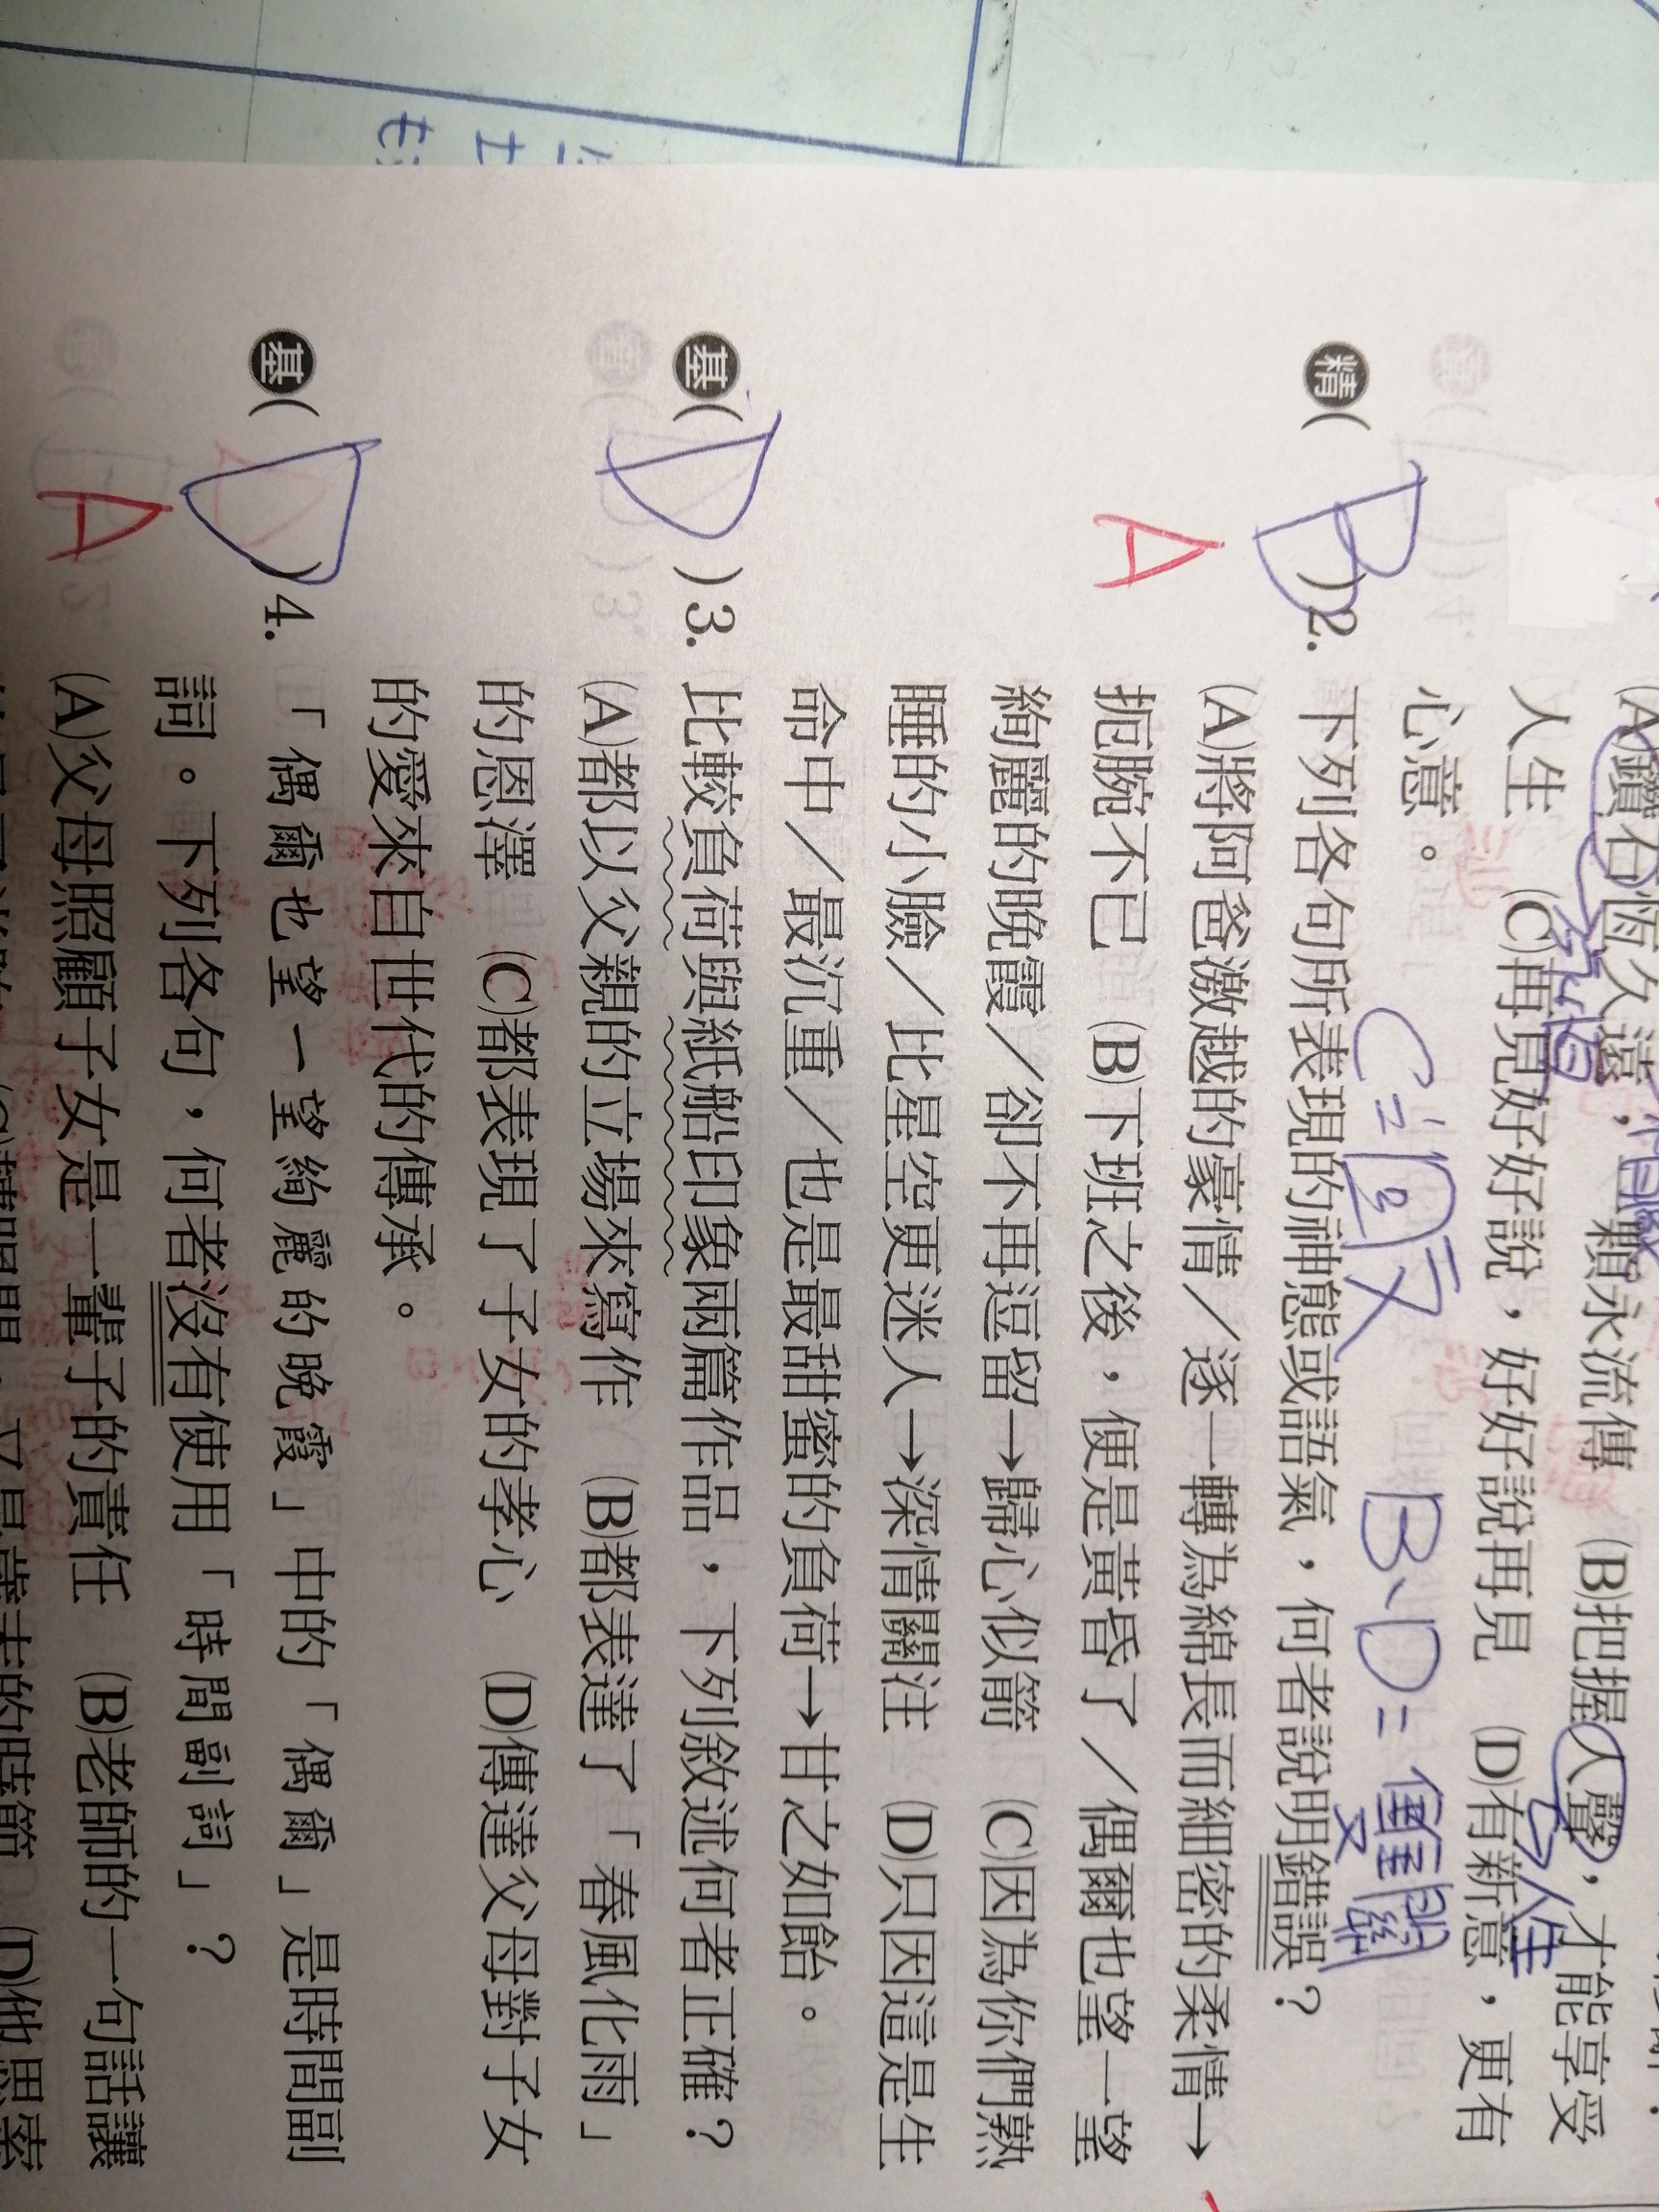 (A)鑽石恆久遠,一顆永流傳 (B)把握人聲,才能享受
人生 (C)再見好好說,好好說再見 (D)有新意,更有
心意。
C=回文 B、D=雙關
精( B )2. 下列各句所表現的神態或語氣,何者說明錯誤?
A
(A)將阿爸激越的豪情/逐一轉為綿長而細密的柔情→
扼腕不已 (B)下班之後,便是黃昏了/偶爾也望一望
絢麗的晚霞/卻不再逗留→歸心似箭 (C)因為你們熟
睡的小臉/比星空更迷人→深情關注 (D)只因這是生
命中/最沉重/也是最甜蜜的負荷→甘之如飴。
基( D )3. 比較負荷與紙船印象兩篇作品,下列敘述何者正確?
(A)都以父親的立場來寫作 (B)都表達了「春風化雨」
的恩澤 (C)都表現了子女的孝心 (D)傳達父母對子女
的愛來自世代的傳承。
基( D )4. 「偶爾也望一望絢麗的晚霞」中的「偶爾」是時間副
詞。下列各句,何者沒有使用「時間副詞」?
A
(A)父母照顧子女是一輩子的責任 (B)老師的一句話讓